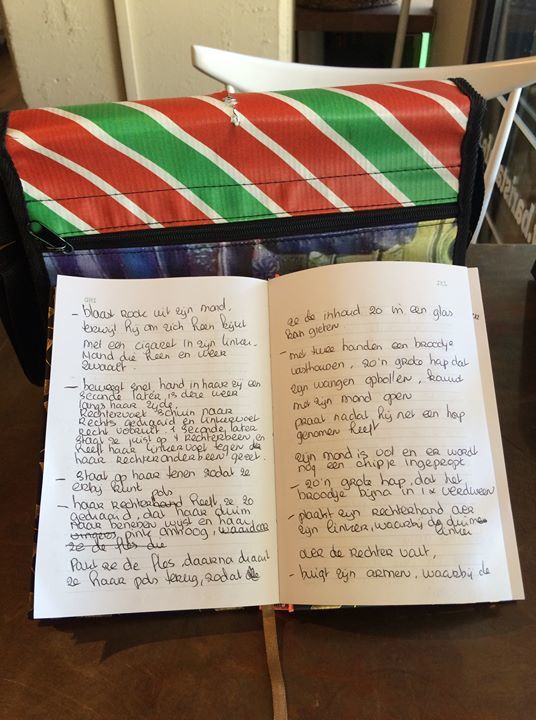 - blaast rook uit zijn mond,
terwijl hij om zich heen kijkt
met een cigaret in zijn linker-
hand die heen en weer
zwaait.
- beweegt snel hand in haar zij een
seconde later, is deze weer
langs haar zijde.
Rechtervoet schuin naar
rechts gedraaid en linkervoet
recht vooruit. 1 seconde later
staat ze juist op 1 rechterbeen, en
heeft haar linkervoet tegen
haar rechteronderbeen gezet.
- staat op haar tenen zodat ze
erbij kunt
pols
- haar rechterhand heeft, ze zo
gedraaid, dat haar duim
naar beneden wijst en haar
vingers pink omhoog, waardoor
ze de fles die
Pakt ze de fles, daarna draait
ze haar pols terug, zodat
ze de inhoud zo in een glas
kan gieten
- met twee handen een broodje
vasthouden, zo'n grote hap dat
zijn wangen opbollen, kauwt
met zijn mond open
praat nadat, hij net een hap
genomen heeft
zijn mond is vol en er wordt
nog een chipje ingepropt
- zo'n grote hap, dat het
broodje bijna in 1 x verdween
- plaatst zijn rechterhand over
zijn linker, waarbij de duim
linker
over de rechter valt,
- buigt zijn armen, waarbij de
barista